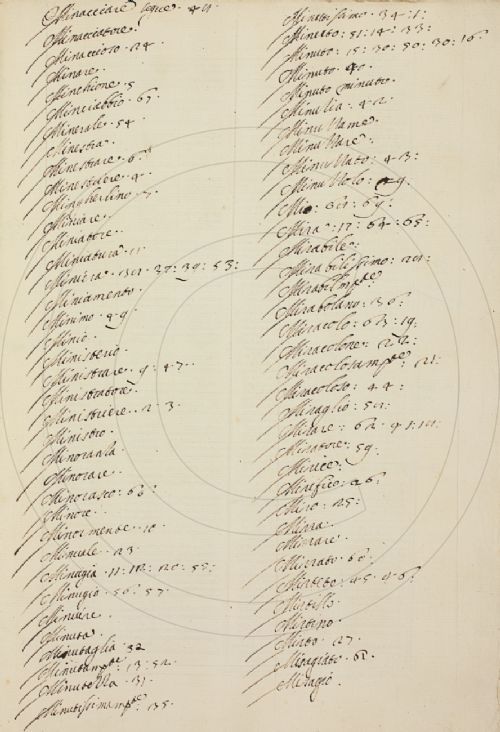 Minacciare
Minacciatore.
Minaccioso. 24.
Minare.
Minchione. 5
Minciabbio. 67.
Minerale. 54.
Minestra.
Minestrare. 6.
Minestriere. 4.
Mingherlino
Miniare.
Miniatore.
Miniatura. 11.
Miniera. 27: 39: 53:
Miniamento.
Minimo. 49.
Minio.
Ministerio.
Ministrare. 9: 47.
Ministratore.
Ministriere. 2. 3.
Ministro.
Minoranza.
Minorare.
Minorasco: 66:
Minore.
Minormente. 10.
Minuale. 23.
Minugia. 11: 20: 55:
Minugio. 50: 57.
Minuire.
Minuta.
Minutaglia. 32
Minutamte. 13: 52.
Minutezza. 31.
Minutissimamte. 135.
Minutissimo. 34: 1:
Minuto: 51: 14: 33:
Minuto: 15: 30: 50: 30: 16.
Minuto. 40.
Minuto minuto.
Minuzia: 42.
Minuzzame.
Minuzzare.
Minuzzato: 43:
Minuzzolo: 29.
Mio: 69:
Mira: 17: 64: 65:
Mirabile:
Mirabilissimo:
Mirabilmte.
Mirabolano: 136:
Miracolo: 63: 19:
Miracolone: 22:
Miracolosamte: 21:
Miracoloso: 44:
Miraglio:
Mirare: 62. 41:
Miratore. 59.
Mirice:
Mirifico: 26:
Miro: 25:
Mirra.
Mirrare.
Mirrato. 60.
Mirteto: 45. 46.
Mirtillo.
Mirtino.
Mirto. 127.
Misagiato. 62.
Misagio.